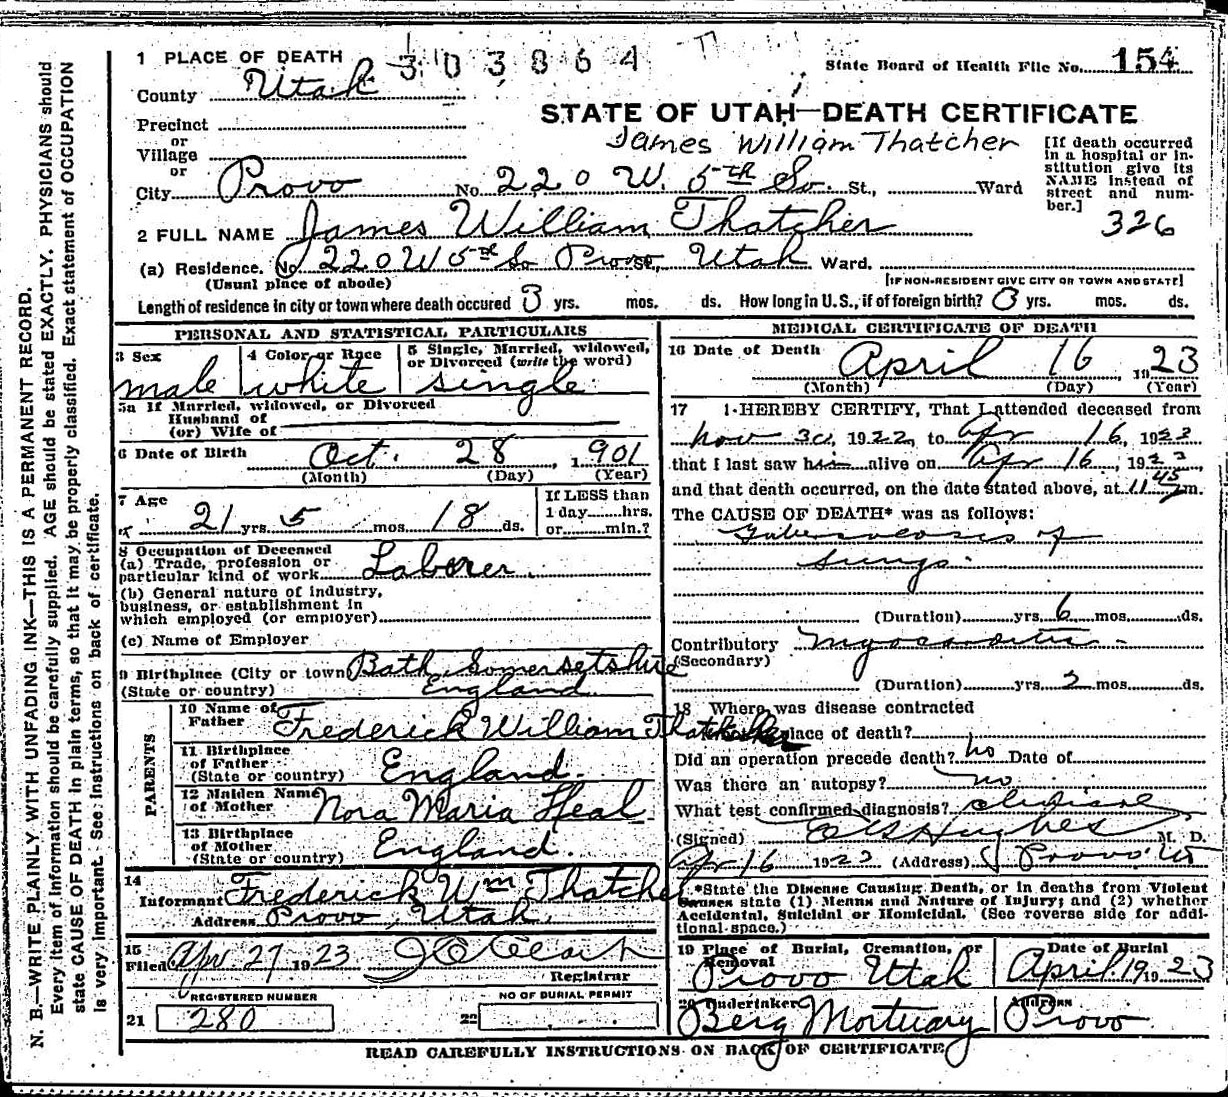 N. B.—WRITE PLAINLY WITH UNFADING INK—THIS IS A PERMANENT RECORD.
Every item of information should be carefully supplied. AGE should be stated EXACTLY. PHYSICIANS should
state CAUSE OF DEATH in plain terms, so that it may be properly classified. Exact statement of OCCUPATION
is very important. See instructions on back of certificate.
1 PLACE OF DEATH 303864
State Board of Health File No. 154
County Utah
STATE OF UTAH—DEATH CERTIFICATE
Precinct
James William Thatcher
or
Village
or
City Provo No. 220 W. 5th So. St., Ward
[If death occurred
in a hospital or in-
stitution give its
NAME instead of
street and num-
ber.]
326
2 FULL NAME James William Thatcher
(a) Residence. No. 220 W 5th So Provo St., Utah Ward.
(Usual place of abode) [IF NON-RESIDENT GIVE CITY OR TOWN AND STATE]
Length of residence in city or town where death occured 3 yrs. mos. ds. How long in U.S., if of foreign birth? 3 yrs. mos. ds.
PERSONAL AND STATISTICAL PARTICULARS
3 Sex 4 Color or Race 5 Single, Married, widowed,
or Divorced (write the word)
male white single
5a If Married, widowed, or Divorced
Husband of
(or) Wife of
6 Date of Birth Oct. 28, 1901
(Month) (Day) (Year)
7 Age
21 yrs. 5 mos. 18 ds.
If LESS than
1 day......hrs.
or......min.?
8 Occupation of Deceased
(a) Trade, profession or
particular kind of work Laborer
(b) General nature of industry,
business, or establishment in
which employed (or employer)
(c) Name of Employer
9 Birthplace (City or town) Bath Somersetshire
(State or country) England
PARENTS
10 Name of
Father Frederick William Thatcher
11 Birthplace
of Father
(State or country) England.
12 Maiden Name
of Mother Nora Maria Heal
13 Birthplace
of Mother
(State or country) England.
14
Informant Frederick Wm Thatcher
Address Provo, Utah.
15
Filed Apr 27 1923
Registrar
REGISTERED NUMBER
21 280
NO OF BURIAL PERMIT
22
MEDICAL CERTIFICATE OF DEATH
16 Date of Death April 16 1923
(Month) (Day) (Year)
17 I HEREBY CERTIFY, That I attended deceased from
Nov 30, 1922, to Apr 16, 1923
that I last saw him alive on Apr 16, 1923
and that death occurred, on the date stated above, at 11 45 m.
The CAUSE OF DEATH* was as follows:
Tuberculosis of
lungs.
(Duration) yrs. 6 mos. ds.
Contributory Myocarditis
(Secondary)
(Duration) yrs. 2 mos. ds.
18 Where was disease contracted
place of death?
Did an operation precede death? no Date of
Was there an autopsy? no
What test confirmed diagnosis? clinical
(Signed) Hughes M. D.
Apr 16 1923 (Address) Provo Ut
*State the Disease Causing Death, or in deaths from Violent
Causes state (1) Means and Nature of Injury; and (2) whether
Accidental, Suicidal or Homicidal. (See reverse side for addi-
tional space.)
19 Place of Burial, Cremation, or
Removal
Provo Utah
Date of Burial
April 19 1923
20 Undertaker
Berg Mortuary
Address
Provo
READ CAREFULLY INSTRUCTIONS ON BACK OF CERTIFICATE